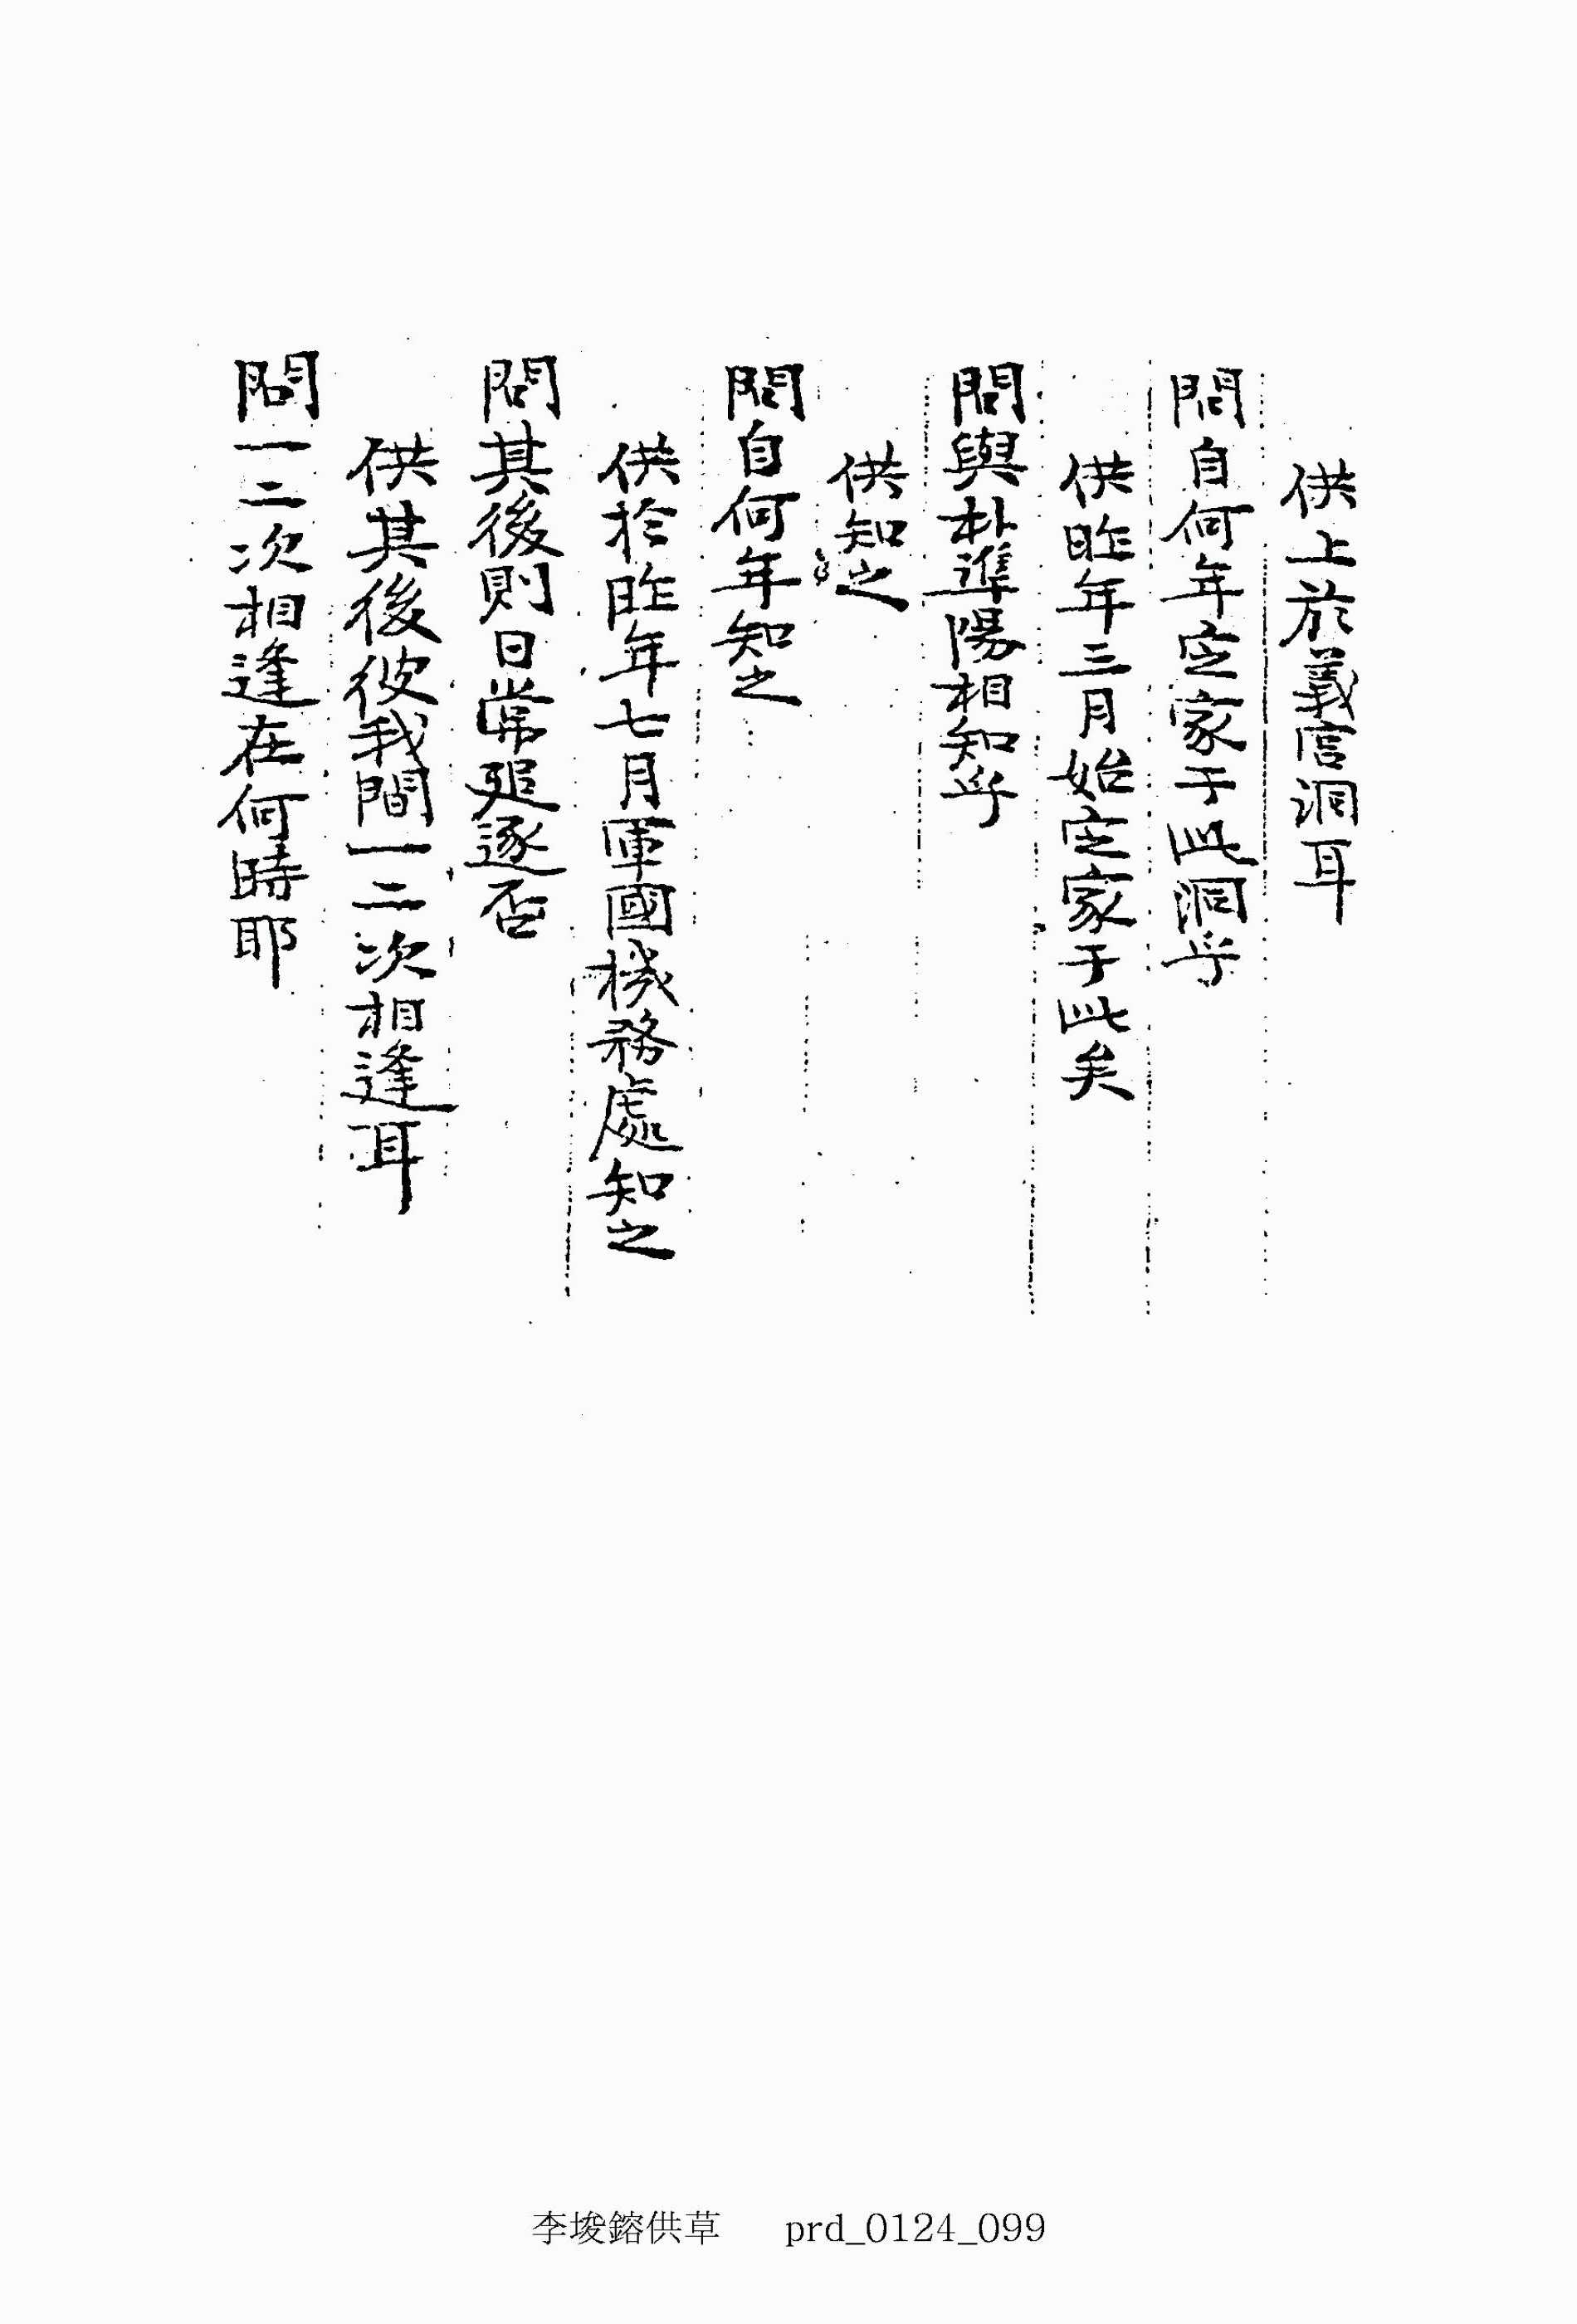 供上於義宮洞耳
問自何年定家于此洞乎
供昨年三月始定家于此矣
問與朴準陽相知乎
供知之
問自何年知之
供於昨年七月軍國機務處知之
問其後則日常追逐否
供其後彼我間一二次相逢耳
問一二次相逢在何時耶
李埈鎔供草 prd_0124_099